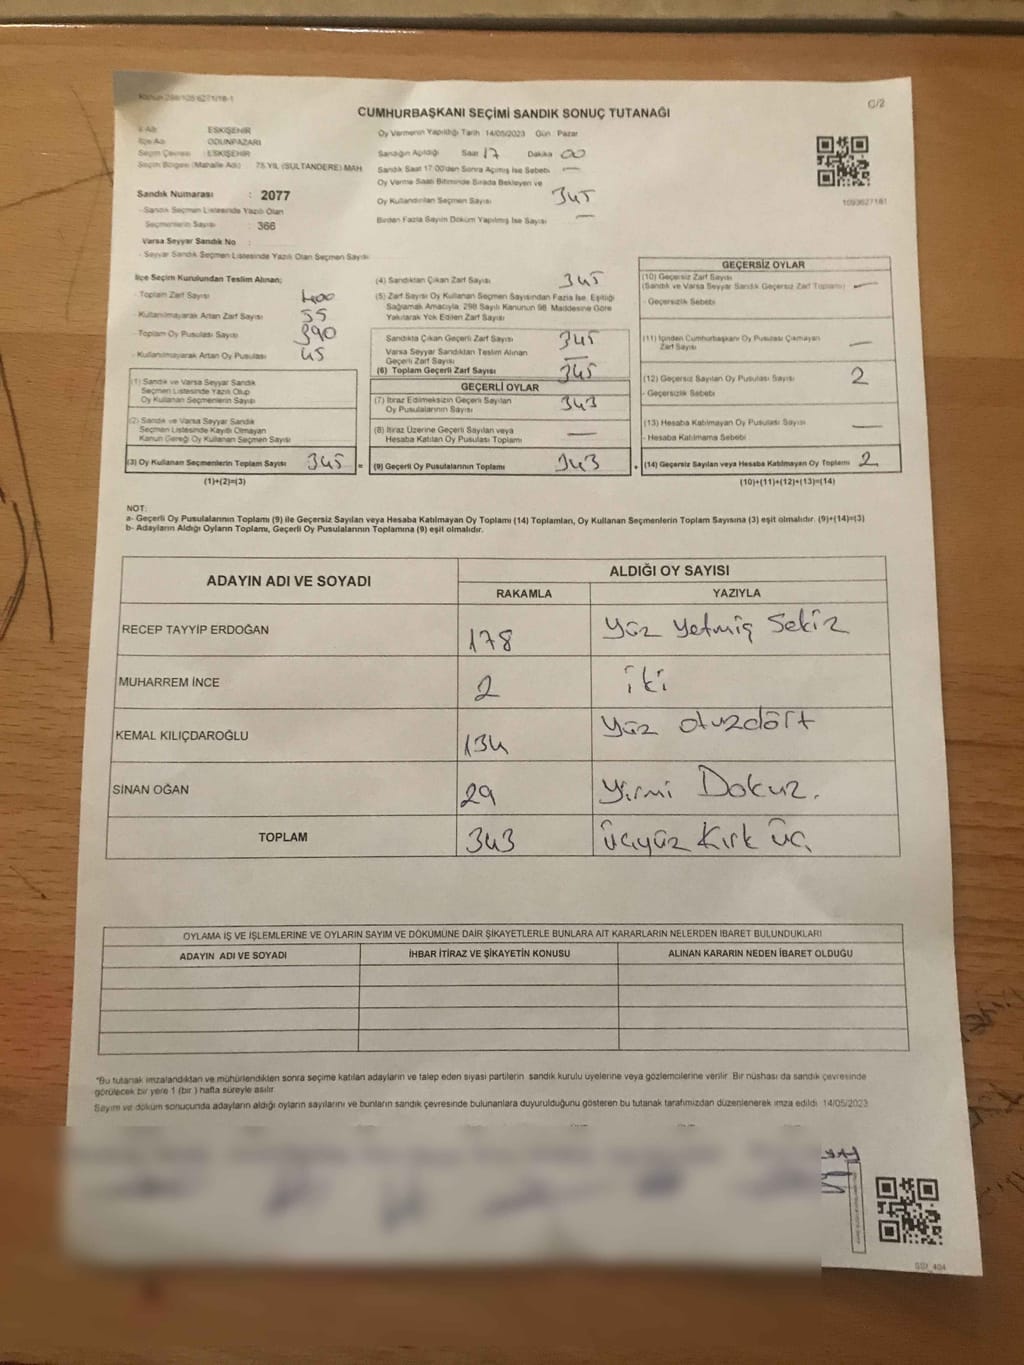 Kanun 298/105 6271/18-1
C/2
CUMHURBAŞKANI SEÇİMİ SANDIK SONUÇ TUTANAĞI
İl Adı : ESKİŞEHİR
İlçe Adı : ODUNPAZARI
Seçim Çevresi : ESKİŞEHİR
Seçim Bölgesi (Mahalle Adı) : 75.YIL (SULTANDERE) MAH.
Sandık Numarası : 2077
- Sandık Seçmen Listesinde Yazılı Olan
Seçmenlerin Sayısı : 366
Varsa Seyyar Sandık No :
- Seyyar Sandık Seçmen Listesinde Yazılı Olan Seçmen Sayısı
Oy Vermenin Yapıldığı Tarih 14/05/2023 Gün : Pazar
Sandığın Açıldığı Saat 17 Dakika 00
Sandık Saat 17:00'den Sonra Açılmış İse Sebebi —
Oy Verme Saati Bitiminde Sırada Bekleyen ve
Oy Kullandırılan Seçmen Sayısı 345
Birden Fazla Sayım Döküm Yapılmış İse Sayısı —
1093627181
İlçe Seçim Kurulundan Teslim Alınan;
- Toplam Zarf Sayısı 400
- Kullanılmayarak Artan Zarf Sayısı 55
- Toplam Oy Pusulası Sayısı 390
- Kullanılmayarak Artan Oy Pusulası 45
(1) Sandık ve Varsa Seyyar Sandık
Seçmen Listesinde Yazılı Olup
Oy Kullanan Seçmenlerin Sayısı
(2) Sandık ve Varsa Seyyar Sandık
Seçmen Listesinde Kayıtlı Olmayan
Kanun Gereği Oy Kullanan Seçmen Sayısı
(3) Oy Kullanan Seçmenlerin Toplam Sayısı 345 =
(1)+(2)=(3)
(4) Sandıktan Çıkan Zarf Sayısı 345
(5) Zarf Sayısı Oy Kullanan Seçmen Sayısından Fazla İse, Eşitliği
Sağlamak Amacıyla, 298 Sayılı Kanunun 98. Maddesine Göre
Yakılarak Yok Edilen Zarf Sayısı
Sandıkta Çıkan Geçerli Zarf Sayısı 345
Varsa Seyyar Sandıktan Teslim Alınan
Geçerli Zarf Sayısı —
(6) Toplam Geçerli Zarf Sayısı 345
GEÇERLİ OYLAR
(7) İtiraz Edilmeksizin Geçerli Sayılan
Oy Pusulalarının Sayısı 343
(8) İtiraz Üzerine Geçerli Sayılan veya
Hesaba Katılan Oy Pusulası Toplamı —
(9) Geçerli Oy Pusulalarının Toplamı 343 +
GEÇERSİZ OYLAR
(10) Geçersiz Zarf Sayısı
(Sandık ve Varsa Seyyar Sandık Geçersiz Zarf Toplamı) —
- Geçersizlik Sebebi
(11) İçinden Cumhurbaşkanı Oy Pusulası Çıkmayan
Zarf Sayısı —
(12) Geçersiz Sayılan Oy Pusulası Sayısı 2
- Geçersizlik Sebebi
(13) Hesaba Katılmayan Oy Pusulası Sayısı —
- Hesaba Katılmama Sebebi
(14) Geçersiz Sayılan veya Hesaba Katılmayan Oy Toplamı 2
(10)+(11)+(12)+(13)=(14)
NOT:
a- Geçerli Oy Pusulalarının Toplamı (9) ile Geçersiz Sayılan veya Hesaba Katılmayan Oy Toplamı (14) Toplamları, Oy Kullanan Seçmenlerin Toplam Sayısına (3) eşit olmalıdır. (9)+(14)=(3)
b- Adayların Aldığı Oyların Toplamı, Geçerli Oy Pusulalarının Toplamına (9) eşit olmalıdır.
ADAYIN ADI VE SOYADI
ALDIĞI OY SAYISI
RAKAMLA YAZIYLA
RECEP TAYYİP ERDOĞAN 178 Yüz Yetmiş Sekiz
MUHARREM İNCE 2 iki
KEMAL KILIÇDAROĞLU 134 Yüz otuzdört
SİNAN OĞAN 29 Yirmi Dokuz.
TOPLAM 343 üçyüz Kırk üç
OYLAMA İŞ VE İŞLEMLERİNE VE OYLARIN SAYIM VE DÖKÜMÜNE DAİR ŞİKAYETLERLE BUNLARA AİT KARARLARIN NELERDEN İBARET BULUNDUKLARI
ADAYIN ADI VE SOYADI İHBAR İTİRAZ VE ŞİKAYETİN KONUSU ALINAN KARARIN NEDEN İBARET OLDUĞU
*Bu tutanak imzalandıktan ve mühürlendikten sonra seçime katılan adayların ve talep eden siyasi partilerin sandık kurulu üyelerine veya gözlemcilerine verilir. Bir nüshası da sandık çevresinde
görülecek bir yere 1 (bir ) hafta süreyle asılır.
Sayım ve döküm sonucunda adayların aldığı oyların sayılarını ve bunların sandık çevresinde bulunanlara duyurulduğunu gösteren bu tutanak tarafımızdan düzenlenerek imza edildi. 14/05/2023